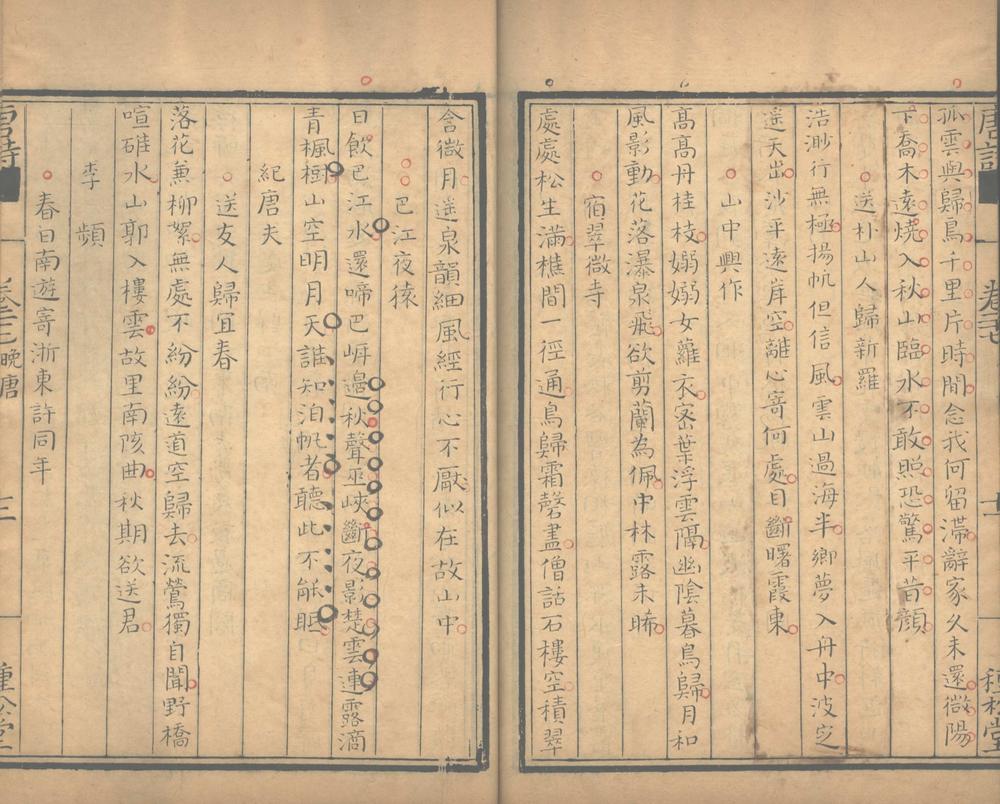 孤雲與歸鳥千里片時間念我何留滯辭家久未還微陽
下喬木遠燒入秋山臨水不敢照恐驚平昔顏
送朴山人歸新羅
浩渺行無極揚帆但信風雲山過海半鄉夢入舟中波定
遥天出沙平遠岸空離心寄何處目斷曙霞東
山中興作
髙髙丹桂枝嫋嫋女蘿衣宻葉浮雲隔幽陰暮鳥歸月和
風影動花落瀑泉飛欲剪蘭為佩中林露未晞
宿翠微寺
處處松生滿樵間一徑通鳥歸霜磬盡僧語石樓空積翠
含微月遥泉韻細風經行心不厭似在故山中
巴江夜猿
日飲巴江水還啼巴㟁邉秋聲巫峽斷夜影楚雲連露滴
青楓樹山空明月天誰知泊帆者聽此不能眠
紀唐夫
送友人歸宜春
落花兼柳絮無處不紛紛遠道空歸去流鶯獨自聞野橋
喧碓水山郭入樓雲故里南陔曲秋期欲送君
李頻
春日南遊寄浙東許同年
唐詩
卷三七
晚唐
種松堂